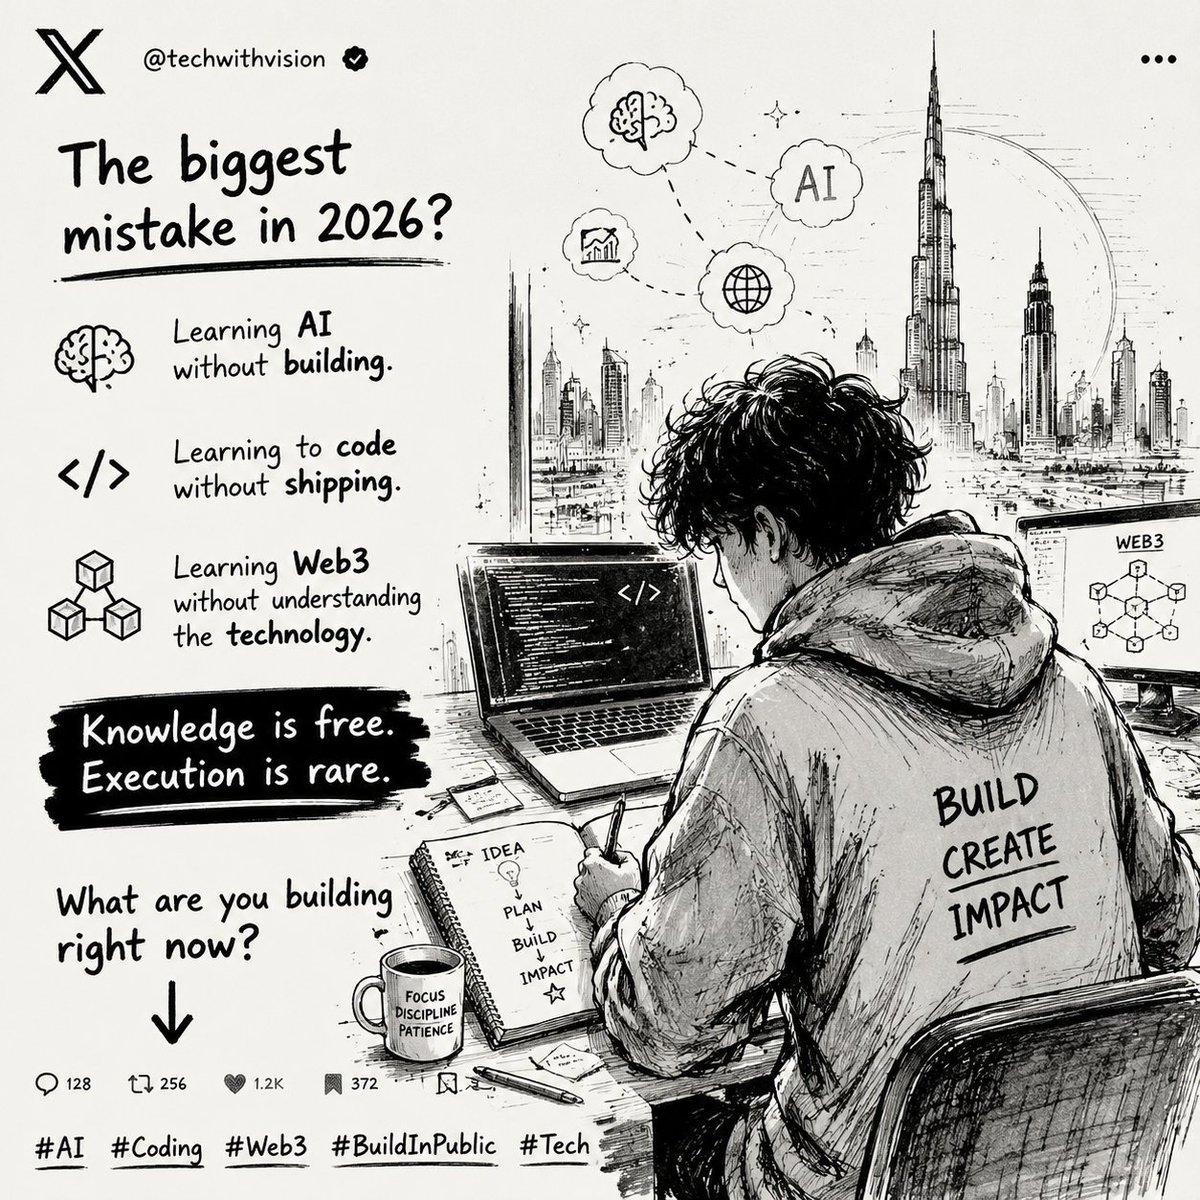 @techwithvision
The biggest
mistake in 2026?
Learning AI
without building.
Learning to code
without shipping.
Learning Web3
without understanding
the technology.
Knowledge is free.
Execution is rare.
What are you building
right now?
128
256
1.2K
372
#AI #Coding #Web3 #BuildInPublic #Tech
AI
</>
WEB3
BUILD
CREATE
IMPACT
IDEA
PLAN
BUILD
IMPACT
FOCUS
DISCIPLINE
PATIENCE